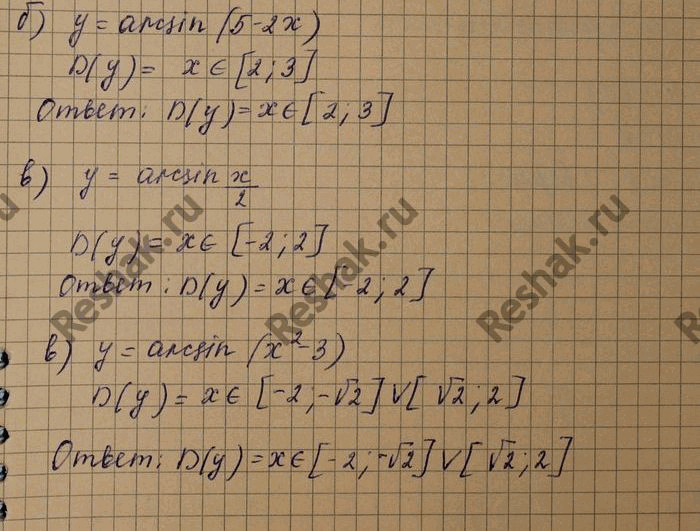 б) y = arcsin (5-2x)
D(y) = x ∈ [2; 3]
Ответ: D(y) = x ∈ [2; 3]
в) y = arcsin x/2
D(y) = x ∈ [-2; 2]
Ответ: D(y) = x ∈ [-2; 2]
в) y = arcsin (x²-3)
D(y) = x ∈ [-2; -√2] ∨ [√2; 2]
Ответ: D(y) = x ∈ [-2; -√2] ∨ [√2; 2]
Reshak.ru
Reshak.ru
Reshak.ru